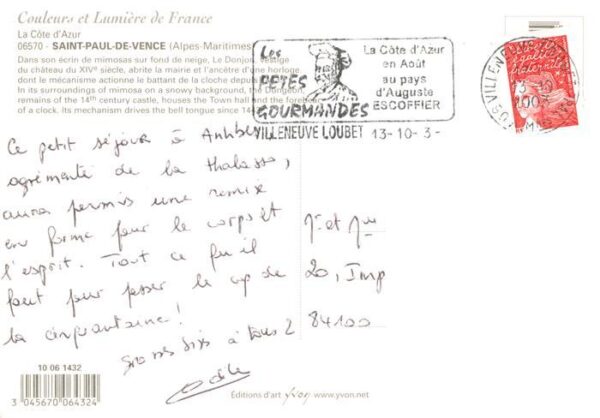 Couleurs et Lumière de France
La Côte d'Azur
06570 - SAINT-PAUL-DE-VENCE (Alpes-Maritimes)
Dans son écrin de mimosas sur fond de neige, Le Donjon, vestige
du château du XIVe siècle, abrite la mairie et l'ancêtre d'une horloge
dont le mécanisme actionne le battant de la cloche
in its surroundings of mimosa on a snowing background, the Dungeon,
remains of the 14th century castle, houses the Town hall and the forebear
of a clock. Its mechanism drives the bell tongue since 14
Les
FETES
GOURMANDES
VILLENEUVE LOUBET 13-10 3-
La Côte d'Azur
en Août
au pays
d'Auguste
ESCOFFIER
Ce petit séjour à Antibes
agrémenté de la thalasso,
aura permis une remise
en forme pour le corps et
l'esprit. Tout ce qu'il
faut pour passer le cap de
la cinquantaine!
Grosses bises à tous 2
Odile
Mr et Mme
20, Imp
84100
10 06 1432
3 045670 064324
Editions d'art yvon www.yvon.net